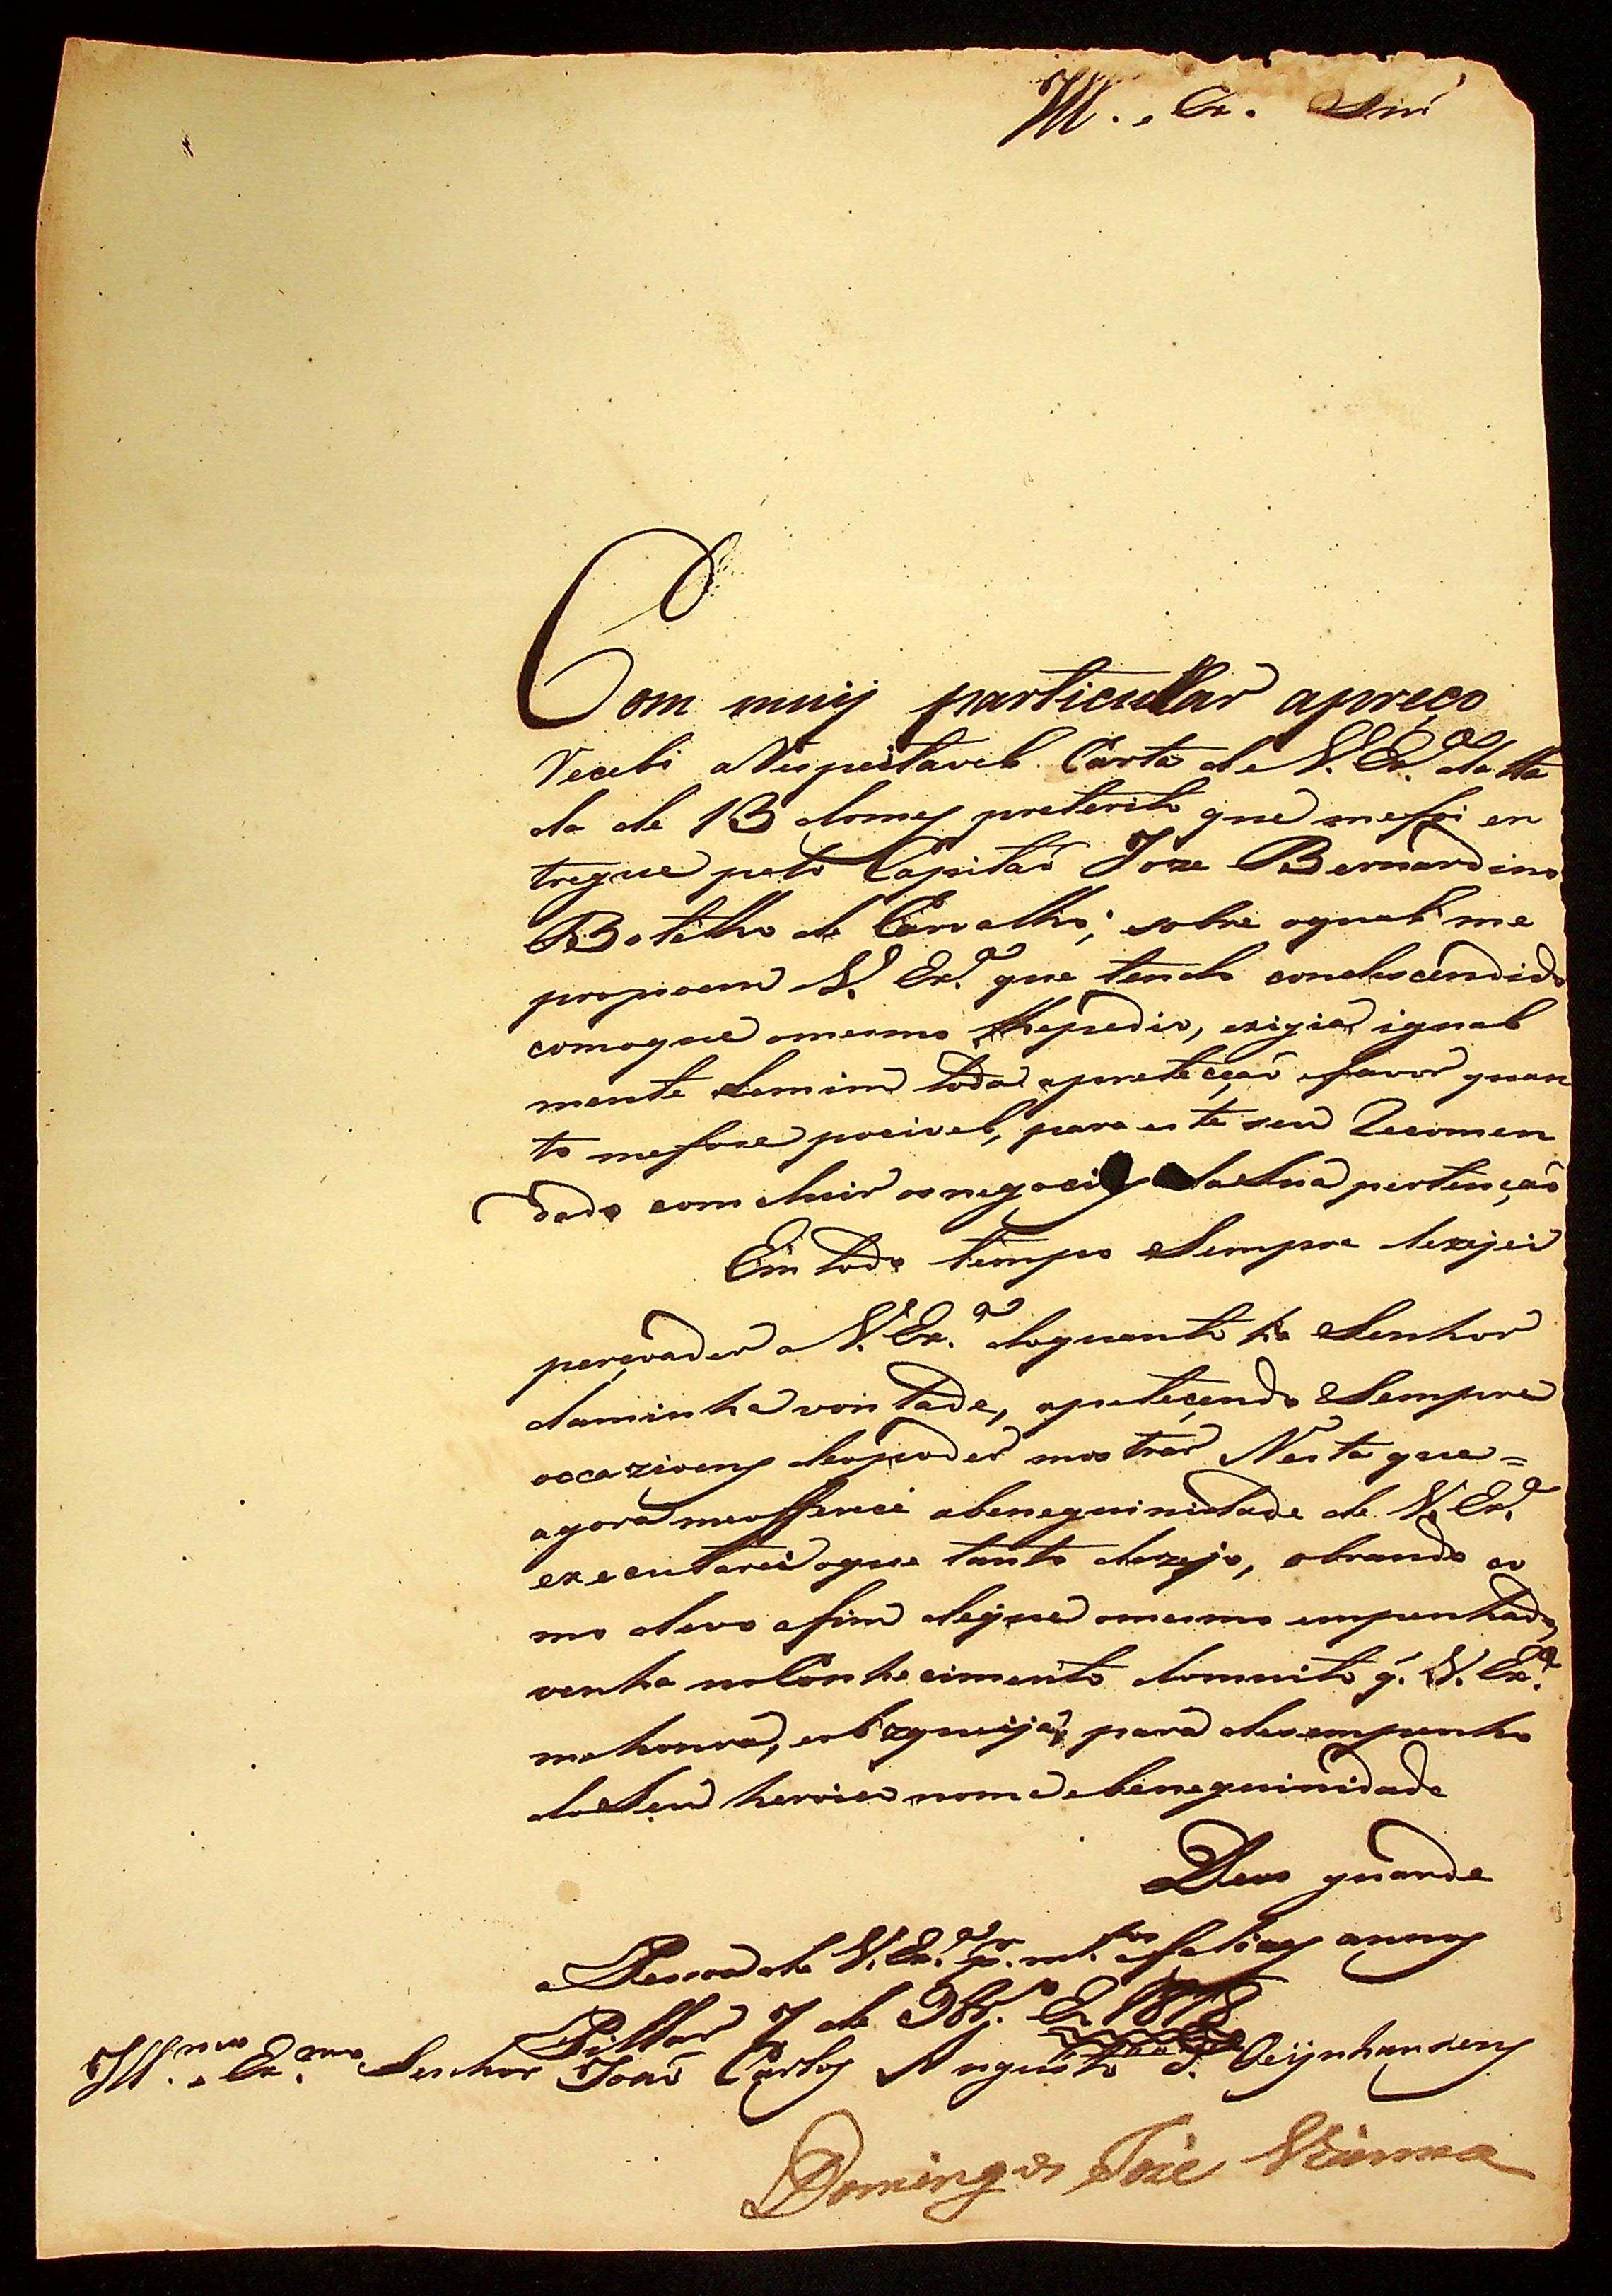 Ill. e Ex. Snr
Com muy particullar apreço
Recebi a Respeitavel Carta de V. Ex.ª datta
da de 13 do mes preterito que me foi en
tregue pelo Capitaó Joze Bernardino
Botelho de Carvalho; sobre o qual me
propoem V. Ex.ª que tendo condescendido
com o que o mesmo lhe pedio, exigia igual
mente de mim toda a proteçaó e favor quan
to me foce pocivel, para este seu Recomen
dado comcluir os negocios da Sua pertençaó
Em todo tempo Sempre dezejei
perçuader a V. Ex.ª do quanto he Senhor
da minha vontade, apeteçendo Sempre
occazioens de o poder mostrar Nesta que =
agora me offerece a beneguinidade de V. Ex.ª
executarei o que tanto dezejo, obrando co
mo devo a fim de que o mesmo empenhado
venha no Conhecimento do muito q. V. Ex.ª
me honra, e obzequeja, para desempenho
do Seu heroico nome e beneguinidade
Deus guarde
a Pessoa de V. Ex.ª p.r m.tos e felices annos
Pillar 7 de 9br.º de 1818
Ill.mo e Ex.mo Senhor Joaó Carlos Augusto d' Oeijnhausens
Domingos Joze Vianna